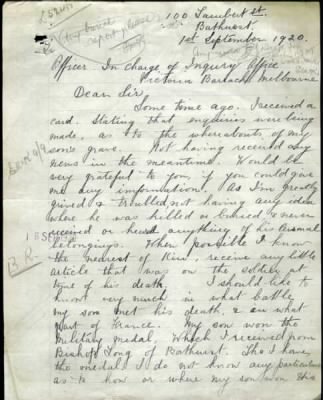 any burial
report please
100 Lambert St.
Bathurst
1st September 1920.
Officer In charge of Inquiry Office
Victoria Barracks Melbourne
Dear Sir
Some time ago. I received a
card. Stating that enquiries were being
made, as to the whereabouts, of my
son's grave. Not having received any
news in the meantime. Would be
very grateful to you, if you could give
me any information. As I'm greatly
grived & troubled, not having any idea
where he was killed or buried, & never
received or heard anything of his personal
belongings. When possible I know
the nearest of Kin, receive any little
article that was on the soldier at
time of his death. I should like to
know very much in what battle
my son met his death, & in what
part of France. My son won the
Military medal, which I received from
Bishop Long of Bathurst. Tho I have
the medal I do not know any particulars
as to how or where my son won this
B.R.